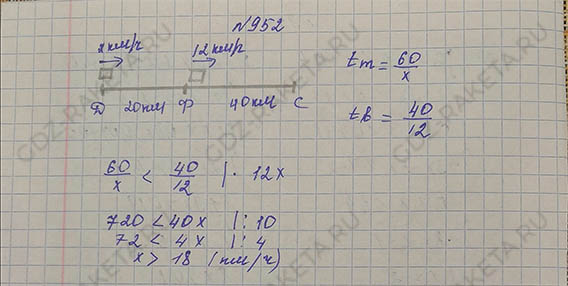 №952
x км/ч 12 км/ч
Д 20км Ф 40км С
tm = 60/x
tв = 40/12
60/x < 40/12 | · 12x
720 < 40x | : 10
72 < 4x | : 4
x > 18 (км/ч)
GDZ-RAKETA.RU